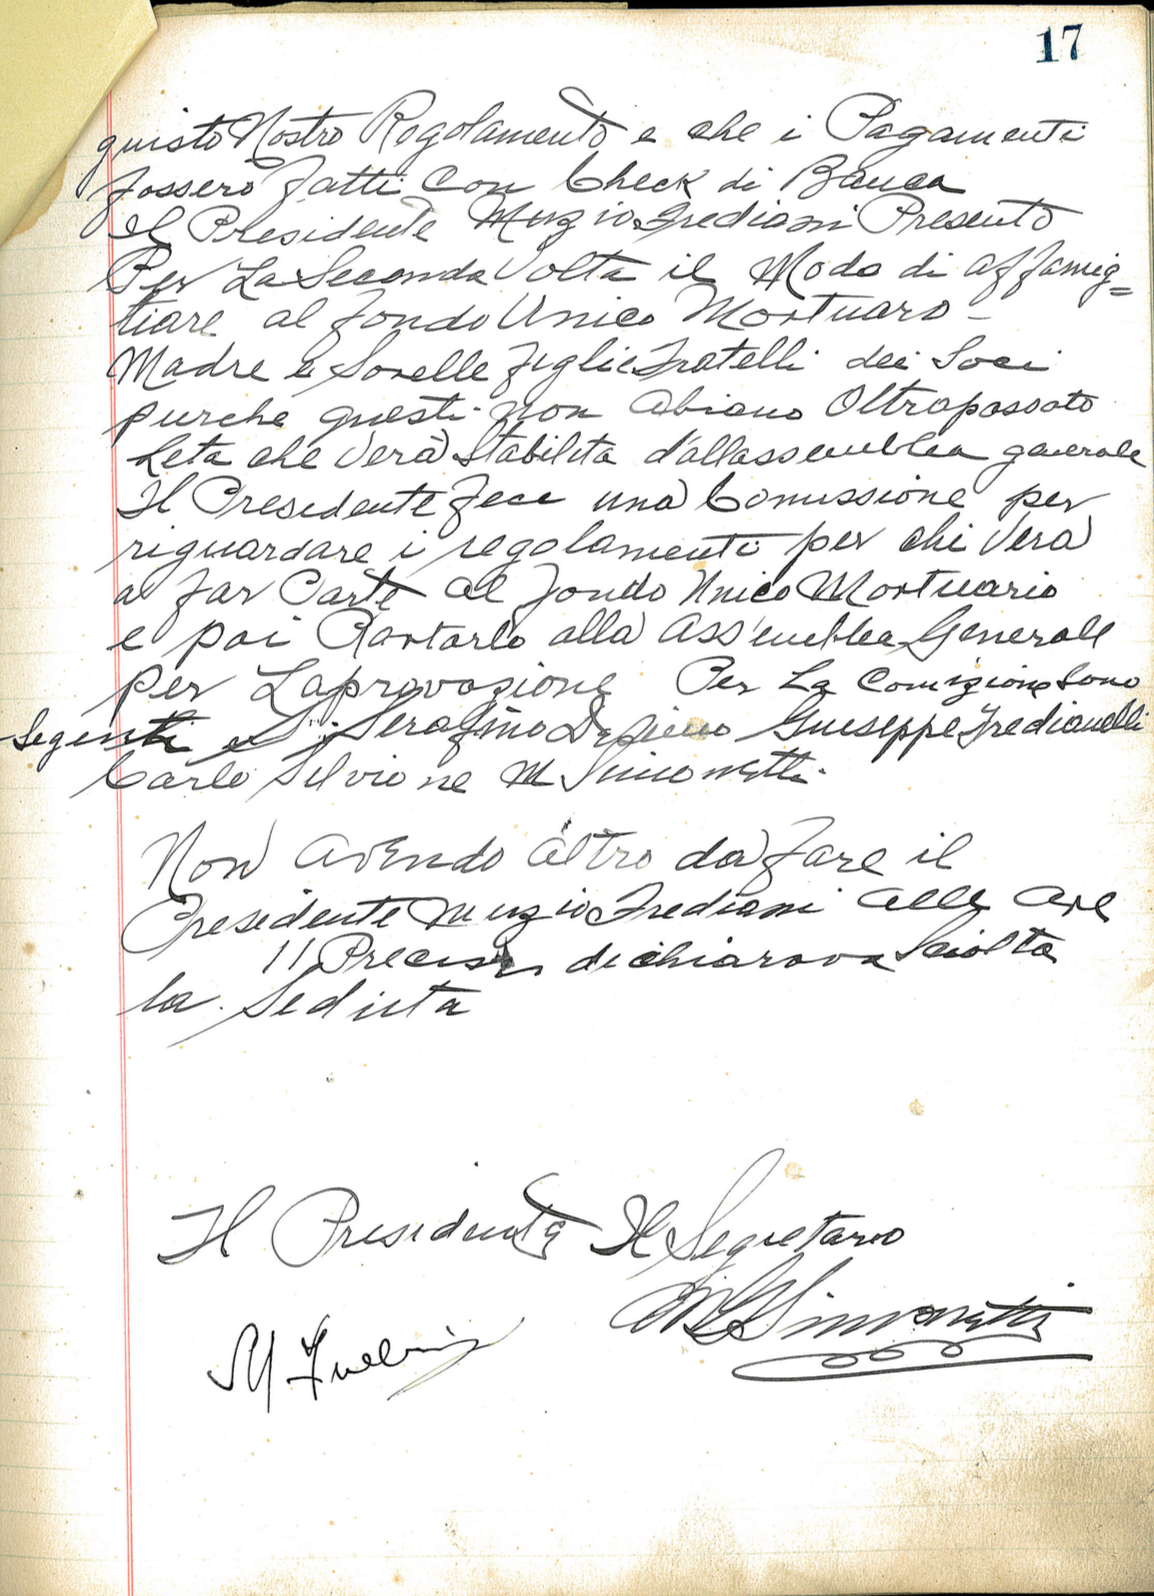 17
guisto Nostro Regolamento e che i Pagamenti
fossero fatti con Check di Banca
il Presidente Muzio Frediani Presento
Per La Seconda Volta il Modo di affamig=
liare al fondo Unico Mortuaro -
Madre e Sorelle figlie Fratelli dei Soci
purche questi non abiano Oltrapassato
Leta che Verà Stabilita d'allassemblea generale
Il Presidente fece una Comissione per
riguardare i regolamenti per chi Vera
a far Parte al fondo Unico Mortuario
e poi Portarlo alla Ass'emblea Generale
per Laprovazione Per La Comizione Sono
Segenti Serafino Giuseppe Fredianelli
Carlo Silvione M Simonetti.
Non avendo altro da fare il
Presidente Muzio Frediani alle Ore
11 Precise dichiarava Sciolta
la Seduta
Il Presidente Il Segretario
M Simonetti
M